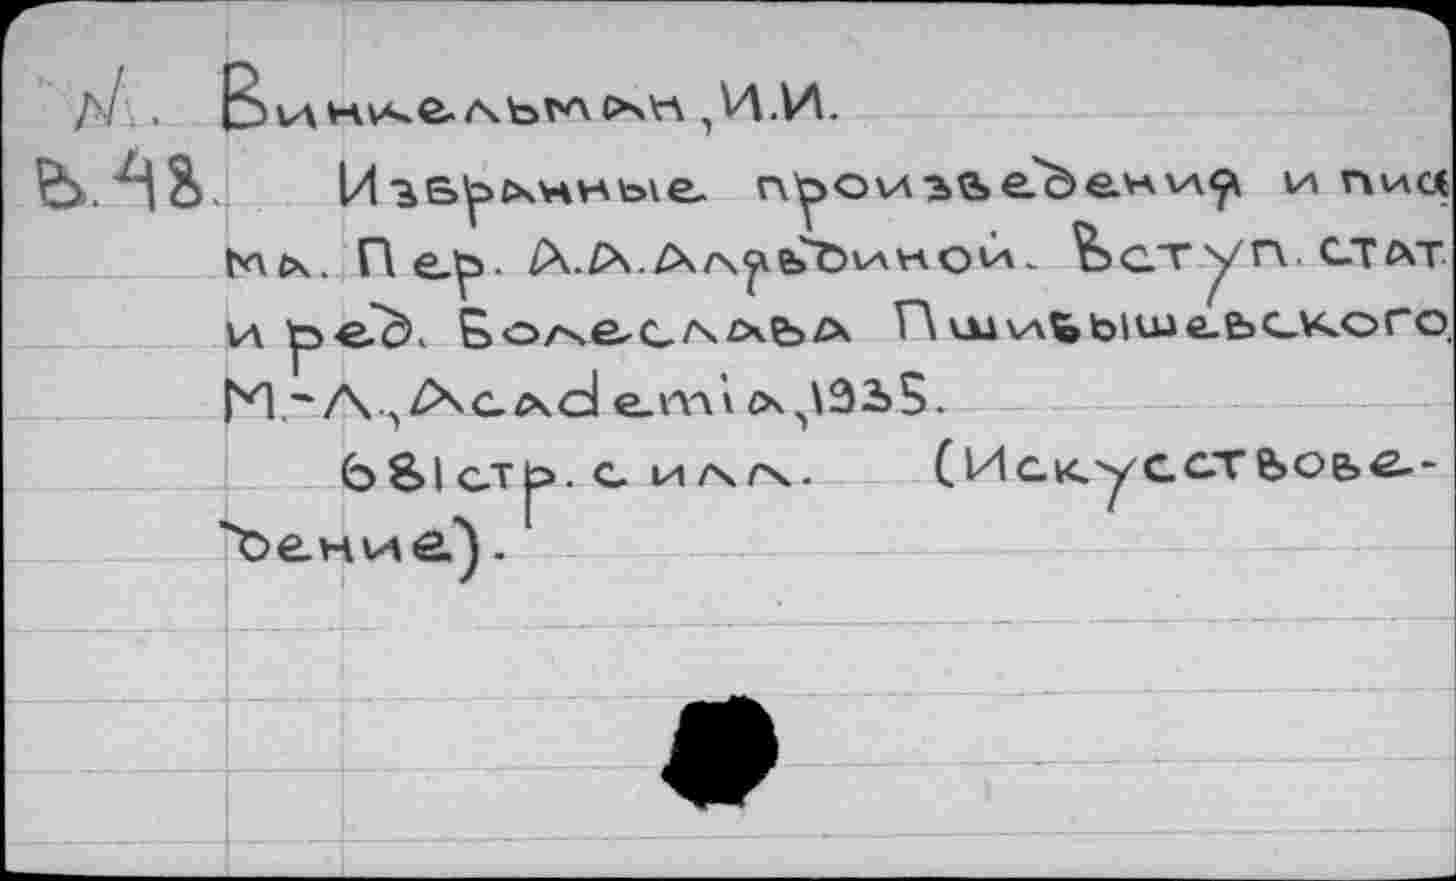 И. Винкельман, И.И.
В.48. Избранные произведения и пись
ма. Пер. А.А.Алявдиной. Вступ. стат.
и ред. Болеслава Пшибышевского.
М.-Л., Academia, 1935.
681 стр. с илл. (Искусствове-
дение).